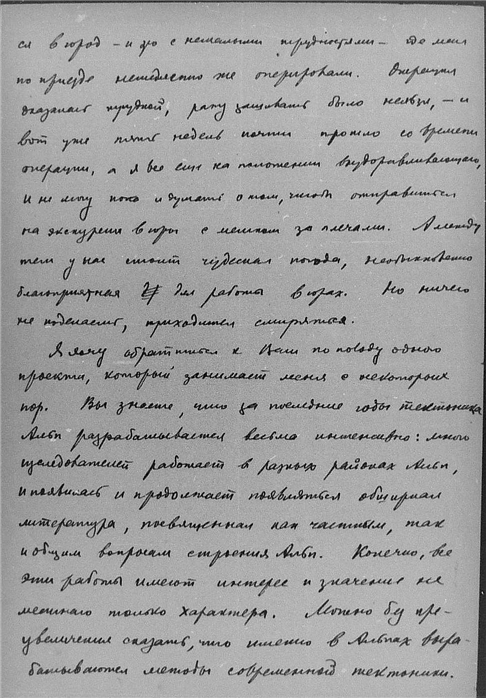 ся в город – и то с немалыми трудностями – где меня
по приезде немедленно же оперировали. Операция
оказалась трудной, рану зашивать было нельзя, – и
вот уже пять недель почти прошло со времени
операции, а я все еще на положении выздоравливающего,
и не могу пока и думать о том, чтобы отправиться
на экскурсии в горы с мешком за плечами. А между
тем у нас стоит чудесная погода, необыкновенно
благоприятная для работы в горах. Но ничего
не поделаешь, приходится смиряться.
Я хочу обратиться к Вам по поводу одного
проекта, который занимает меня с некоторых
пор. Вы знаете, что за последние годы тектоника
Альп разрабатывается весьма интенсивно: много
исследователей работает в разных районах Альп,
и появилась и продолжает появляться обширная
литература, посвященная как частным, так
и общим вопросам строения Альп. Конечно, все
эти работы имеют интерес и значение не
местного только характера. Можно без пре-
увеличения сказать, что именно в Альпах выра-
батываются методы современной тектоники.